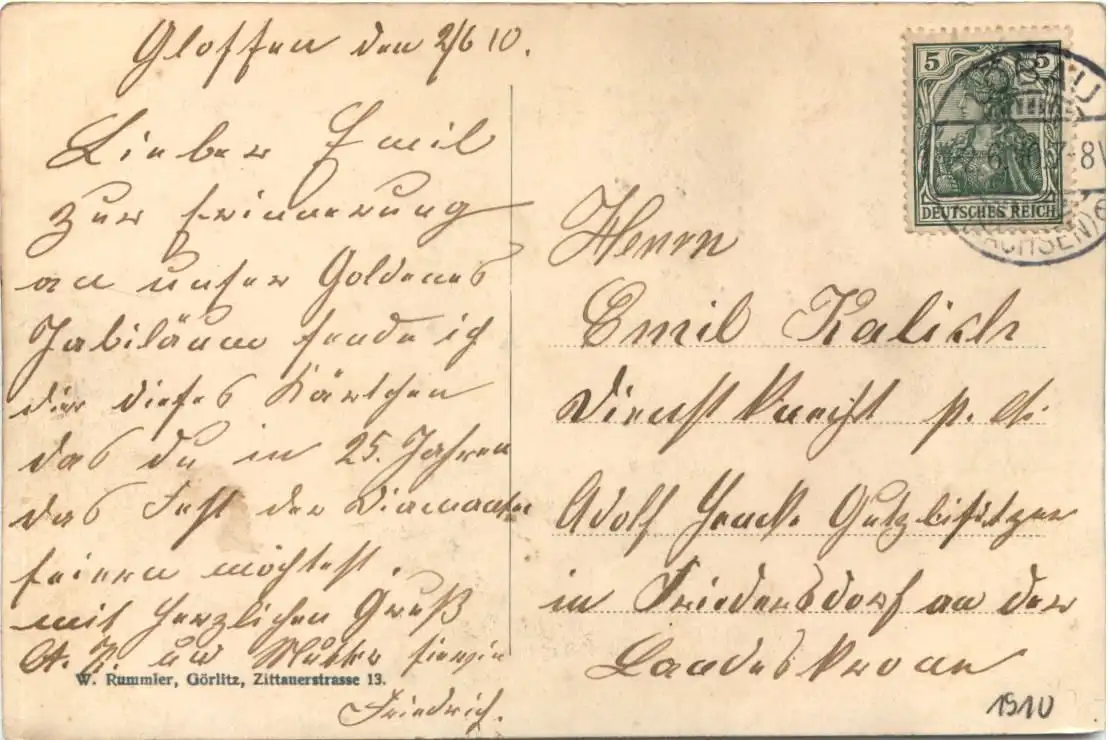 Glossen den 2/6 10.
Lieber Emil
zur Erinnerung
an unser Goldenes
Jubiläum sende ich
dir dieses Kärtchen
das du in 25. Jahren
das Fest der Diamanten
feiern möchtest.
mit Herzlichen Gruß
un Mutter
Friedrich.
W. Rummler, Görlitz, Zittauerstrasse 13.
5 5
DEUTSCHES REICH
SACHSEN)
Herrn
Emil Kalich
Dienstknecht p. Ad.
Adolf Gutzbesitzer
in Friedersdorf an der
Landeskrone
1910